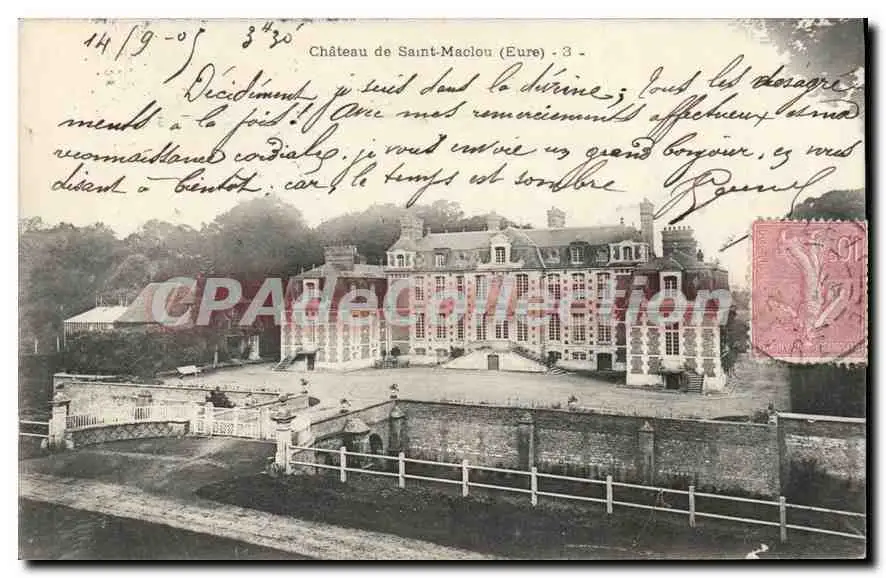 14/9-05 3h30
Château de Saint-Maclou (Eure) - 3 -
Décidément je suis dans la dévine; Tous les désagré
ments à la fois! Avec mes remerciements affectueux et ma
reconnaissance cordiale, je vous envoie un grand bonjour, en vous
disant à bientôt, car le temps est sombre
CPArama.com
10